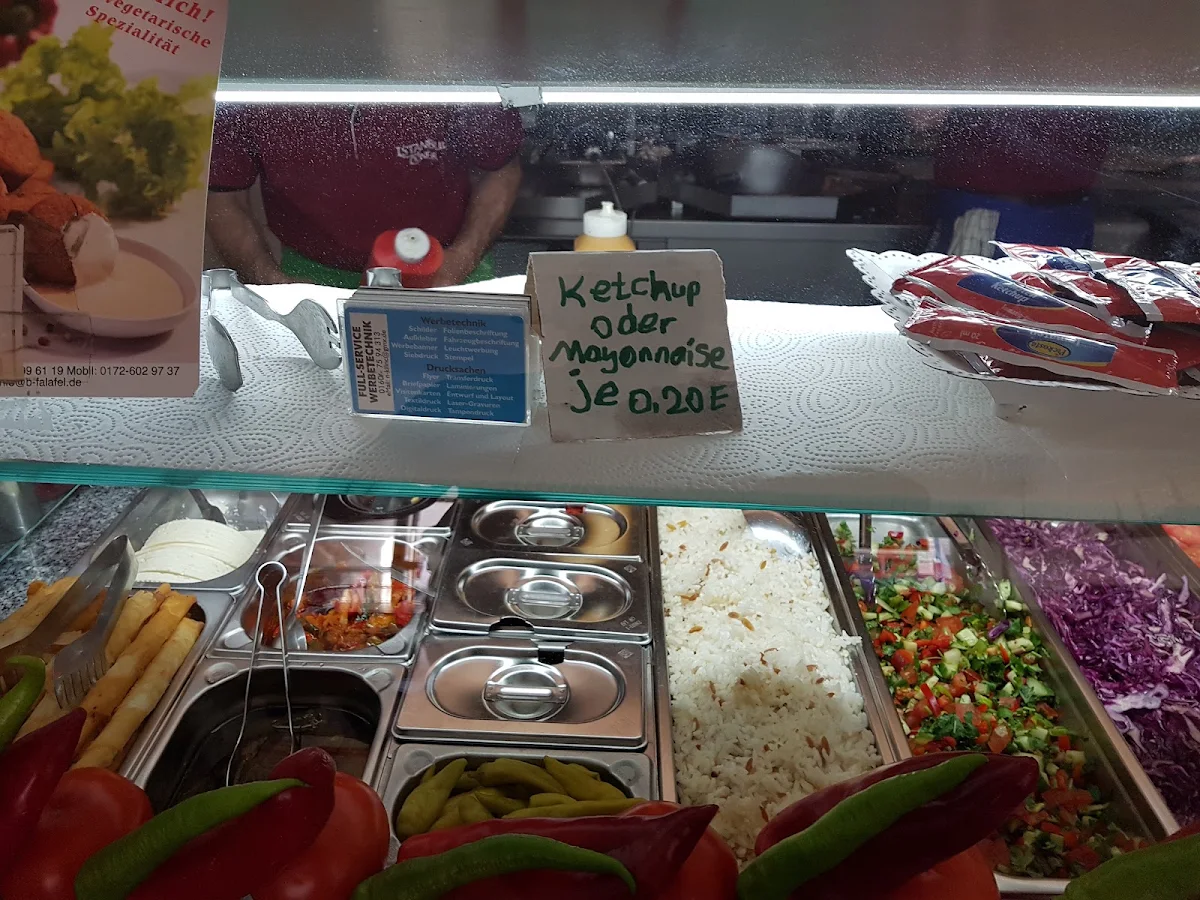 Vegetarische
Spezialität
09 61 19 Mobil: 0172-602 97 37
@b-falafel.de
ISTANBUL
FULL-SERVICE
WERBETECHNIK
Werbetechnik
Schilder Folienbeschriftung
Aufkleber Fahrzeugbeschriftung
Werbebanner Leuchtwerbung
Siebdruck Stempel
Drucktechnik
Flyer Transferdruck
Briefpapier Laminierungen
Visitenkarten Entwurf und Layout
Textildruck Laser-Gravuren
Digitaldruck Tampondruck
Ketchup
oder
Mayonnaise
je 0.20E